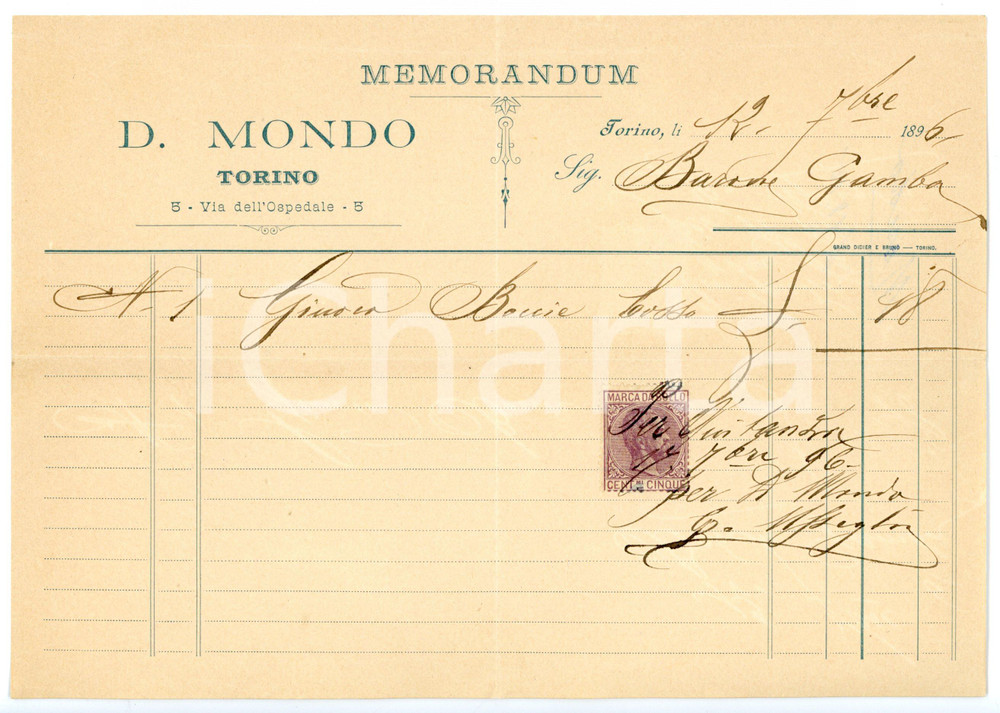 MEMORANDUM
D. MONDO
TORINO
5 - Via dell'Ospedale - 5
Torino, li 12 - 7bre 1896
Sig. Barone Gamba
GRAND DIDIER E BRUNO — TORINO.
N. 1 Giuoco Boccie Bosso L. 18
iCharta
MARCA DA BOLLO
CENT.MI CINQUE
Per Quitanza
7bre 96
per D Mondo